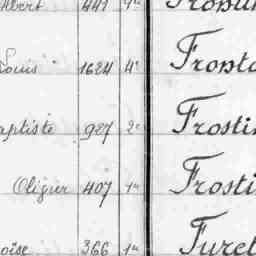 Albert 441 1re
Louis 1624 4e
aptiste 927 2e Frostin
Oligier 407 1re Frosti
oise 366 1re Furet